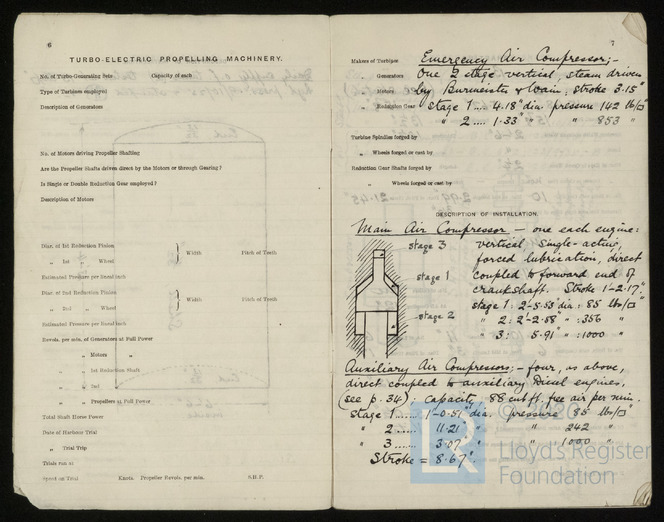 6
TURBO-ELECTRIC PROPELLING MACHINERY.
No. of Turbo-Generating Sets Capacity of each
Type of Turbines employed
Description of Generators
No. of Motors driving Propeller Shafting
Are the Propeller Shafts driven direct by the Motors or through Gearing?
Is Single or Double Reduction Gear employed?
Description of Motors
Diar. of 1st Reduction Pinion
„ 1st „ Wheel } Width Pitch of Teeth
Estimated Pressure per lineal inch
Diar. of 2nd Reduction Pinion
„ 2nd „ Wheel } Width Pitch of Teeth
Estimated Pressure per lineal inch
Revols. per min. of Generators at Full Power
„ „ Motors „
„ „ 1st Reduction Shaft
„ „ 2nd „
„ „ Propellers at Full Power
Total Shaft Horse Power
Date of Harbour Trial
„ Trial Trip
Trials run at
Speed on Trial Knots. Propeller Revols. per min. S.H.P.
7
Makers of Turbines Emergency Air Compressor;-
„ Generators One 2 stage vertical, steam driven
„ Motors by Burmeister & Wain; stroke 3.15"
„ Reduction Gear stage 1.... 4.18" dia. pressure 142 lb/□"
„ 2.... 1.33" „ „ 853 „
Turbine Spindles forged by
„ Wheels forged or cast by
Reduction Gear Shafts forged by
„ Wheels forged or cast by
DESCRIPTION OF INSTALLATION.
Main Air Compressor – one each engine:
stage 3 vertical, single-acting,
forced lubrication, direct
stage 1 coupled to forward end of
crankshaft. Stroke 1-2.17"
stage 1: 2-5.53" dia: 85 lb/□"
stage 2 „ 2: 2'-2.58" „ :356 „
„ 3: 5.91" „ :1000 „
Auxiliary Air Compressors;- four, as above,
direct coupled to auxiliary Diesel engines,
(see p. 34); capacity 88 cub ft. free air per min.
stage 1...... 1'-0.51" dia. pressure 85 lb/□"
„ 2...... 11.21 „ „ 242 „
„ 3...... 3.07 „ „ 1000 „
Stroke = 8.67"
LR
© 2020
Lloyd's Register
Foundation